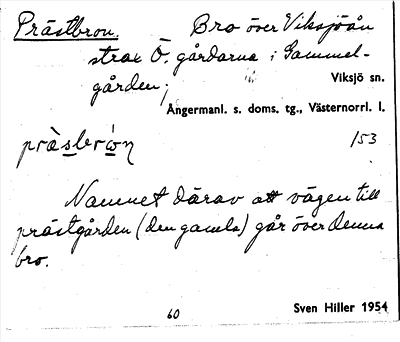 Prästbron. Bro över Viksjöån
strax Ö. gårdarna i Gammel-
gården; Viksjö sn.
Ångermanl. s. doms. tg., Västernorrl. l.
prä̀sbrón 153
Namnet därav att vägen till
prästgården (den gamla) går över denna
bro.
60 Sven Hiller 1954